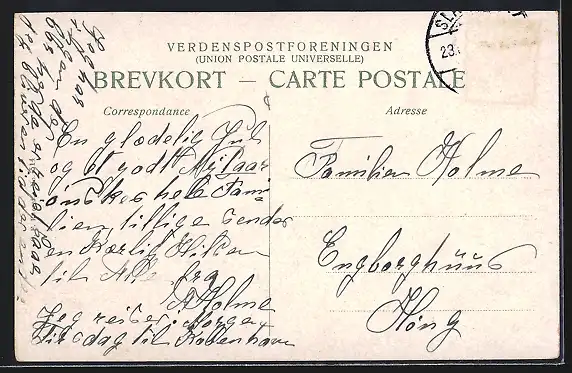 VERDENSPOSTFORENINGEN
(UNION POSTALE UNIVERSELLE)
BREVKORT — CARTE POSTALE
Correspondance
Adresse
En glædelig Jul
og et godt Nytaar
ønskes hele Fami-
lien tillige sender
en Kærlig Hilsen
til Alle fra
A Holme
Jeg rejser i Morgen
Tirsdag til København
Familien Holme
Engborghuus
Høng
23.